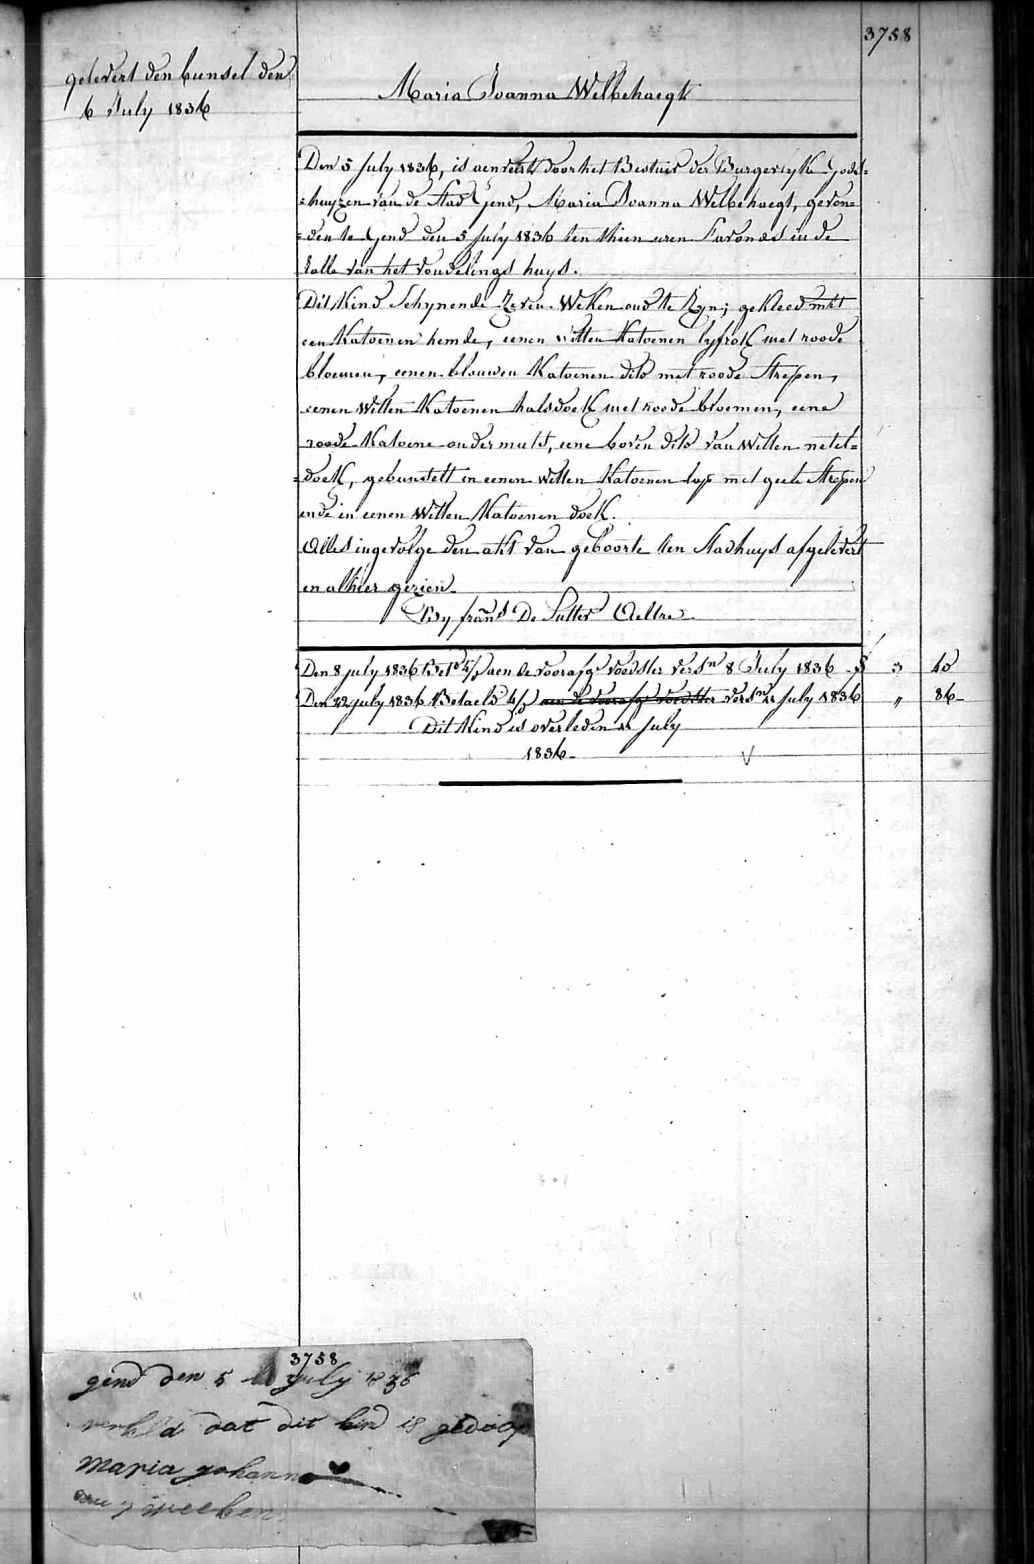 3758
gelevert den bunsel den
6 July 1836
Maria Joanna Welbehaegt
Den 5 July 1836, is aenveerd door het Bestuir der Burgerlyke Gods=
=huyzen van de Stad Gend, Maria Joanna Welbehaegt, gevon=
=den te Gend den 5 July 1836 ten thien uren s'avonds in de
rolle van het vondelings huys.
Dit Kind Schynende zeven Weken oud te Zyn; gekleed met
een Katoenen hemde, eenen witten Katoenen lyfrok met roode
bloemen, eenen blauwen Katoenen dito met roode Strepen,
eenen Witten Katoenen halsdoek met roode bloemen, eene
roode Katoene ondermuts, eene boven dito van Witten netel=
=doek, gebunselt in eenen witten Katoenen lap met geele Strepen
ende in eenen Witten Katoenen doek.
Alles ingevolge den akt van geboorte ten Stadhuys afgelevert
en alhier gezien.
By frans De Sutter Aeltre
Den 8 july 1836 Bet.d aen de voorafg.e voedster vers.n 8 July 1836 3 40
Den 22 july 1836 Betaeld aen de voorafg voedster vers.n 11 July 1836 " 86
Dit Kind is overleden 11 July
1836
3758
gend den 5 July 1836
dat dit kind is gedoop
Maria Johanna
oud 7 weeken